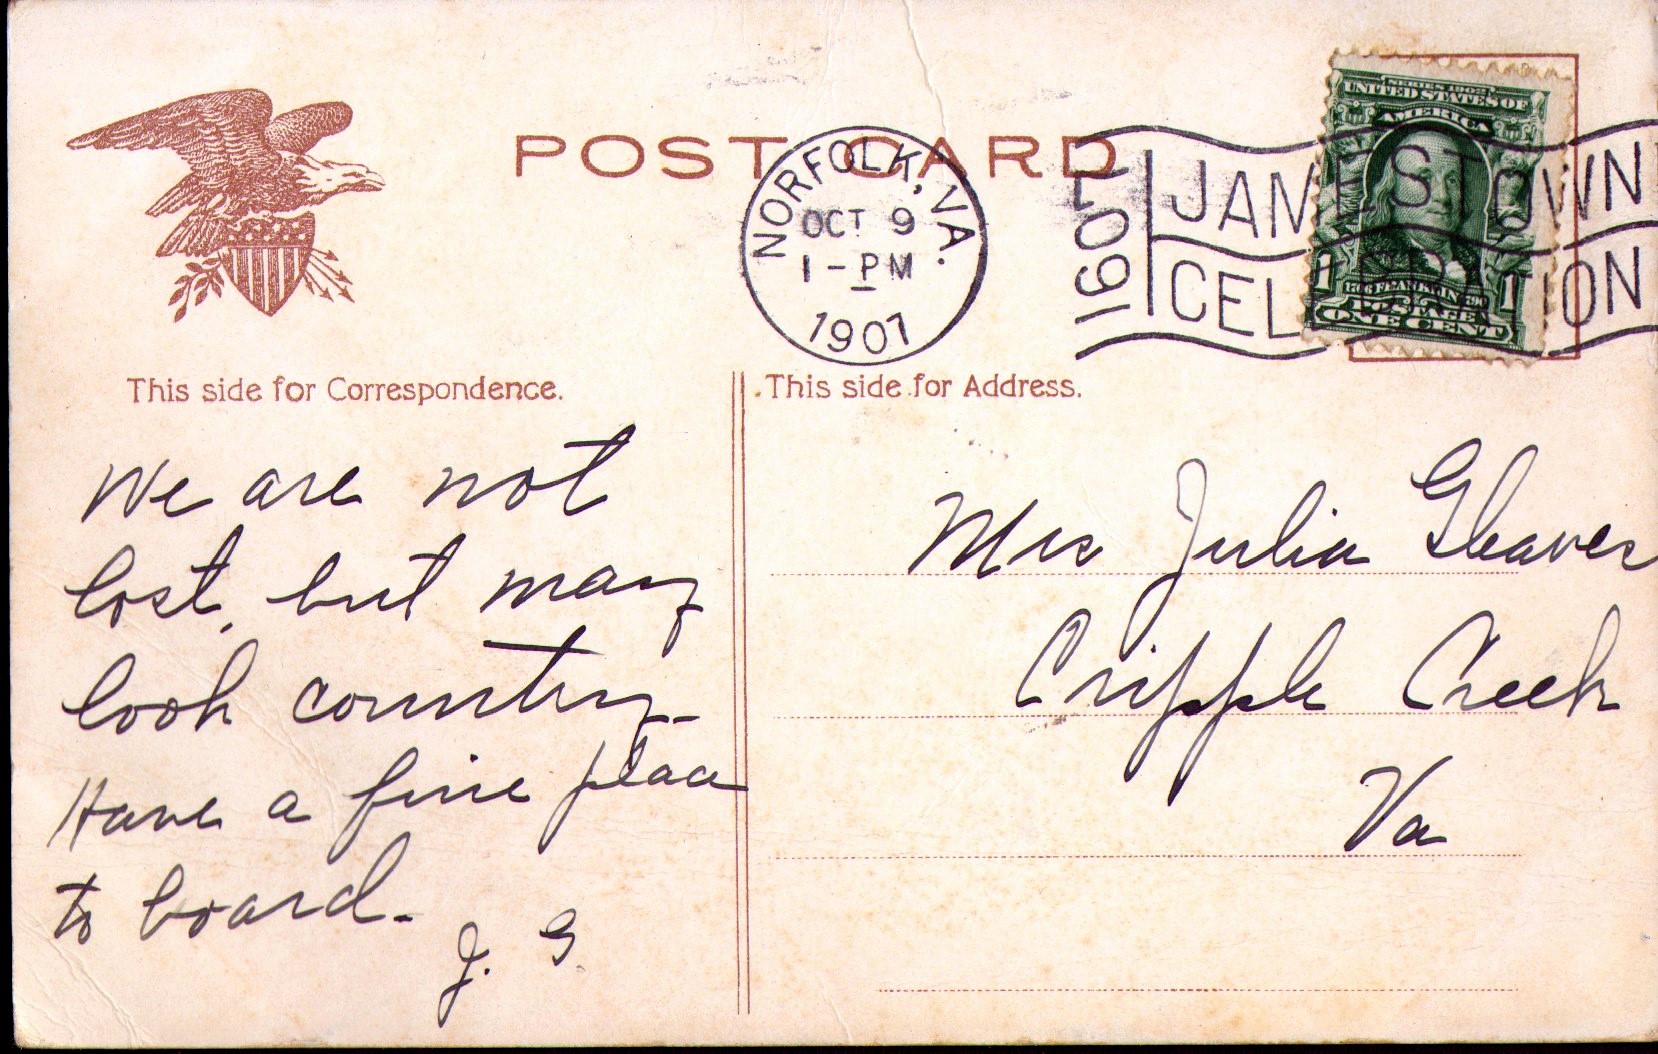 POST CARD
NORFOLK, VA.
OCT 9
1-PM
1907
1907
JAMESTOWN
CELEBRATION
SERIES 1902
UNITED STATES OF
AMERICA
1 1
1706 FRANKLIN 1790
POSTAGE
ONE CENT
This side for Correspondence.
We are not
lost, but may
look country-
Have a fine place
to board.
J. G.
This side for Address.
Mrs Julia Gleaves
Cripple Creek
Va